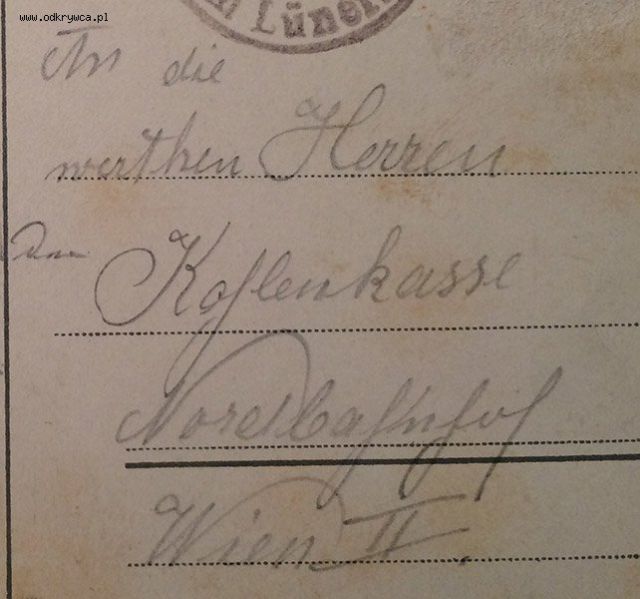 www.odkrywca.pl
in Lünen
An die
werthen Herren
Kohlenkasse
Nordbahnhof
Wien II.